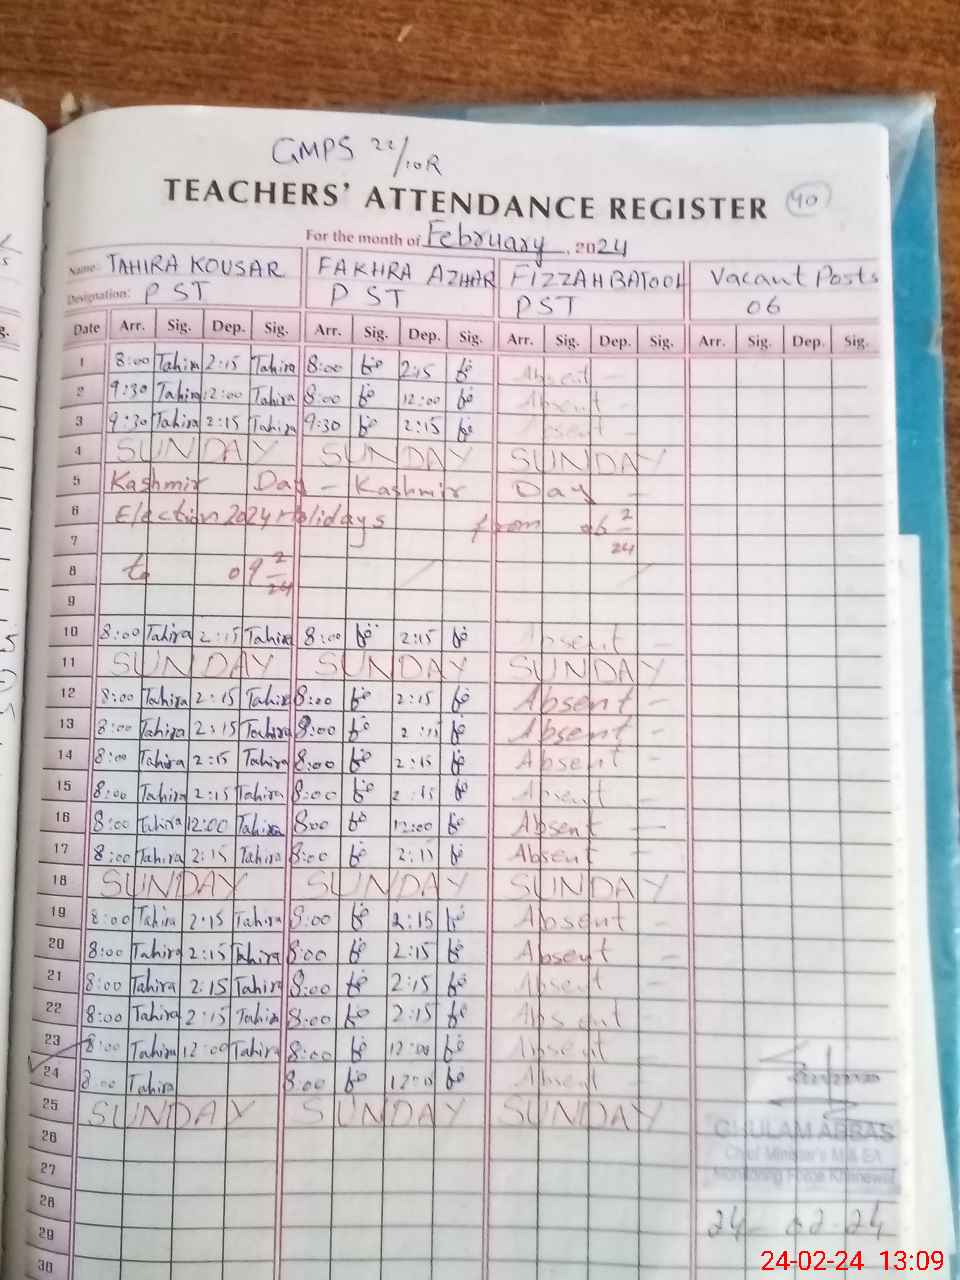 GMPS 22/10R
TEACHERS' ATTENDANCE REGISTER 40
For the month of February, 2024
Name: TAHIRA KOUSAR FAKHRA AZHAR FIZZAH BATOOL Vacant Posts
Designation: PST PST PST 06
Date Arr. Sig. Dep. Sig. Arr. Sig. Dep. Sig. Arr. Sig. Dep. Sig. Arr. Sig. Dep. Sig.
1 8:00 Tahira 2:15 Tahira 8:00 2:15 Absent -
2 9:30 Tahira 12:00 Tahira 8:00 12:00 Absent -
3 9:30 Tahira 2:15 Tahira 9:30 2:15 Absent -
4 SUNDAY SUNDAY SUNDAY
5 Kashmir Day - Kashmir Day -
6 Election 2024 Holidays from 06 2/24
7
8 to 09 2/24
9
10 8:00 Tahira 2:15 Tahira 8:00 2:15 Absent -
11 SUNDAY SUNDAY SUNDAY
12 8:00 Tahira 2:15 Tahira 8:00 2:15 Absent -
13 8:00 Tahira 2:15 Tahira 8:00 2:15 Absent -
14 8:00 Tahira 2:15 Tahira 8:00 2:15 Absent -
15 8:00 Tahira 2:15 Tahira 8:00 2:15 Absent -
16 8:00 Tahira 12:00 Tahira 8:00 12:00 Absent -
17 8:00 Tahira 2:15 Tahira 8:00 2:15 Absent -
18 SUNDAY SUNDAY SUNDAY
19 8:00 Tahira 2:15 Tahira 8:00 2:15 Absent -
20 8:00 Tahira 2:15 Tahira 8:00 2:15 Absent -
21 8:00 Tahira 2:15 Tahira 8:00 2:15 Absent -
22 8:00 Tahira 2:15 Tahira 8:00 2:15 Absent -
23 8:00 Tahira 12:00 Tahira 8:00 12:00 Absent -
24 8:00 Tahira 8:00 12:0 Absent -
25 SUNDAY SUNDAY SUNDAY
26
GHULAM ABBAS
Chief Minister's M & EA
27
Monitoring Force Khanewal
28
29 24-02-24
30
24-02-24 13:09